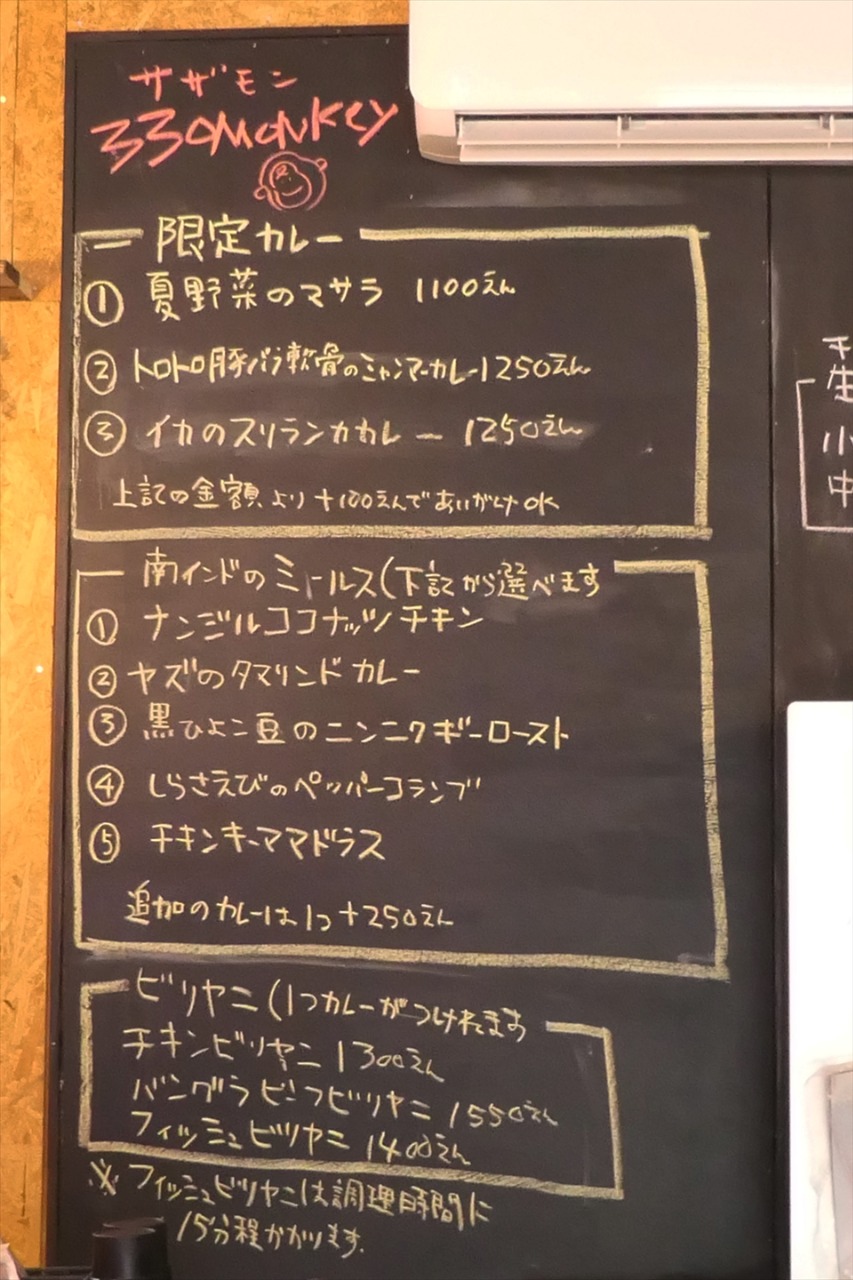 サザモン
330monkey
限定カレー
① 夏野菜のマサラ 1100えん
② トロトロ豚バラ軟骨のミャンマーカレー1250えん
③ イカのスリランカカレー 1250えん
上記の金額より+100えんであいがけOK
南インドのミールス(下記から選べます
① ナンジルココナッツチキン
② ヤズのタマリンドカレー
③ 黒ひよこ豆のニンニクギーロースト
④ しらさえびのペッパーコランブ
⑤ チキンキーママドラス
追加のカレーは1つ+250えん
ビリヤニ(1つカレーがつけれます
チキンビリヤニ 1300えん
バングラビーフビリヤニ 1550えん
フィッシュビリヤニ 1400えん
※ フィッシュビリヤニは調理時間に
15分程かかります.
生
小
中